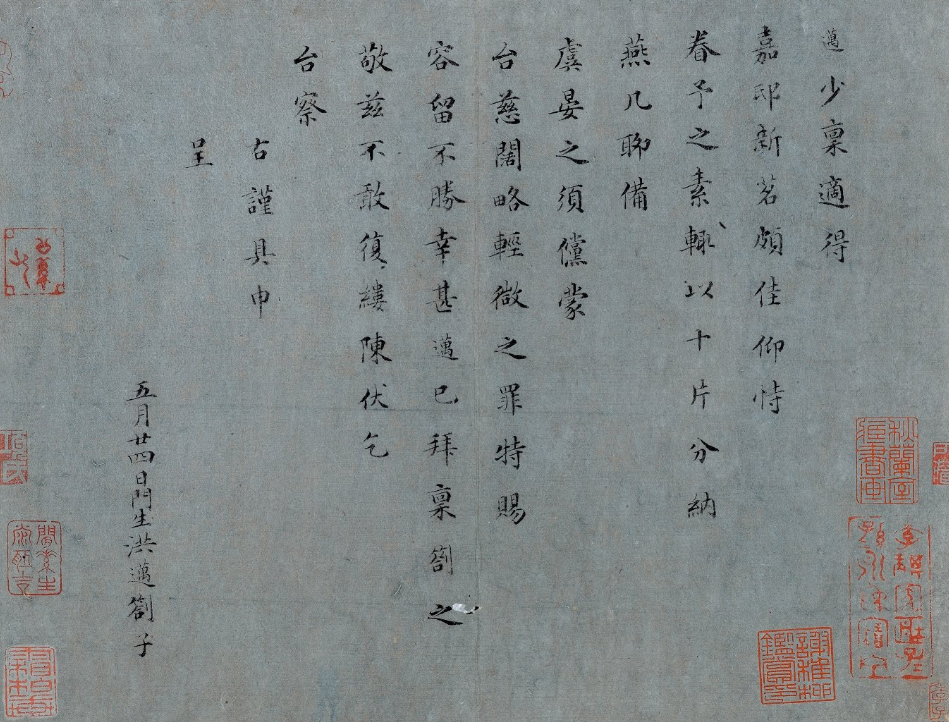 邁少稟適得
嘉邸新茗頗佳仰恃
眷予之素輙以十片分納
燕几聊備
虞晏之須儻蒙
台慈闊略輕微之罪特賜
容留不勝幸甚邁已拜稟劄之
敬茲不敢復縷陳伏乞
台察
右謹具申
呈
五月廿四日門生洪邁劄子